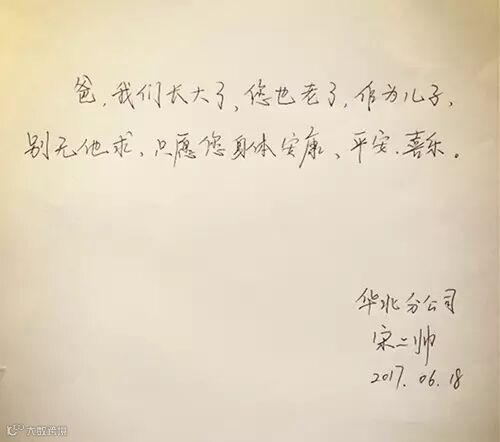 爸,我们长大了,您也老了,作为儿子,
别无他求,只愿您身体安康、平安.喜乐。
华北分公司
宋二帅
2017.06.18
大数跨境